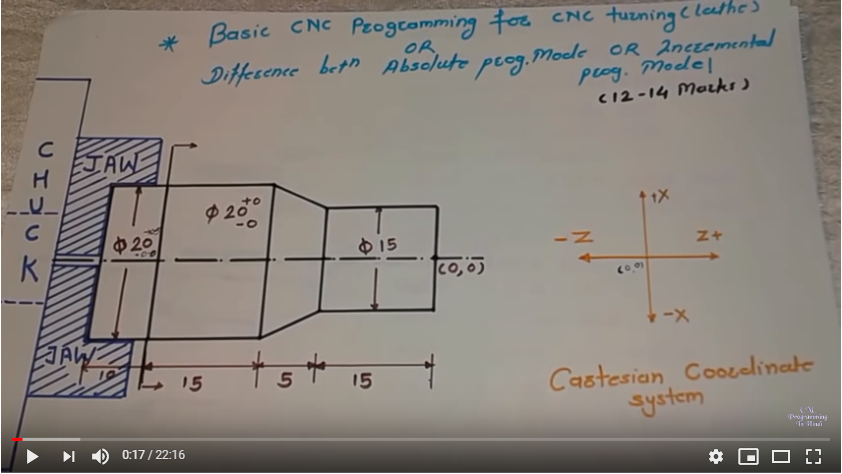 * Basic CNC Programming for CNC turning (lathe)
OR
Difference betn Absolute prog. Mode OR Incremental
prog. Model
(12-14 Marks)
CHUCK
JAW
ϕ20
ϕ20 +0
-0
ϕ15
(0,0)
JAW
10
15
5
15
+X
-Z
Z+
(0,0)
-X
Cartesian Coordinate
system
CNC
Programming
In Hindi
0:17 / 22:16